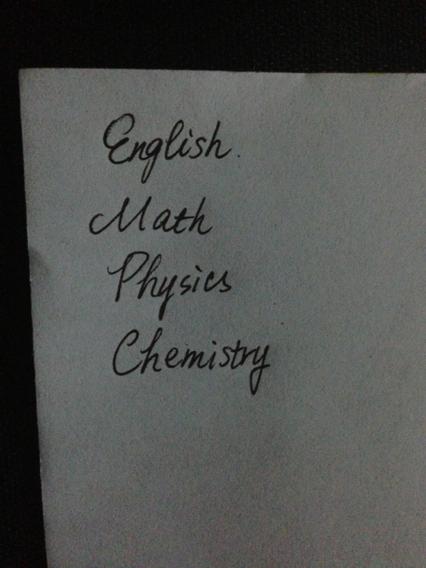 English.
Math
Physics
Chemistry